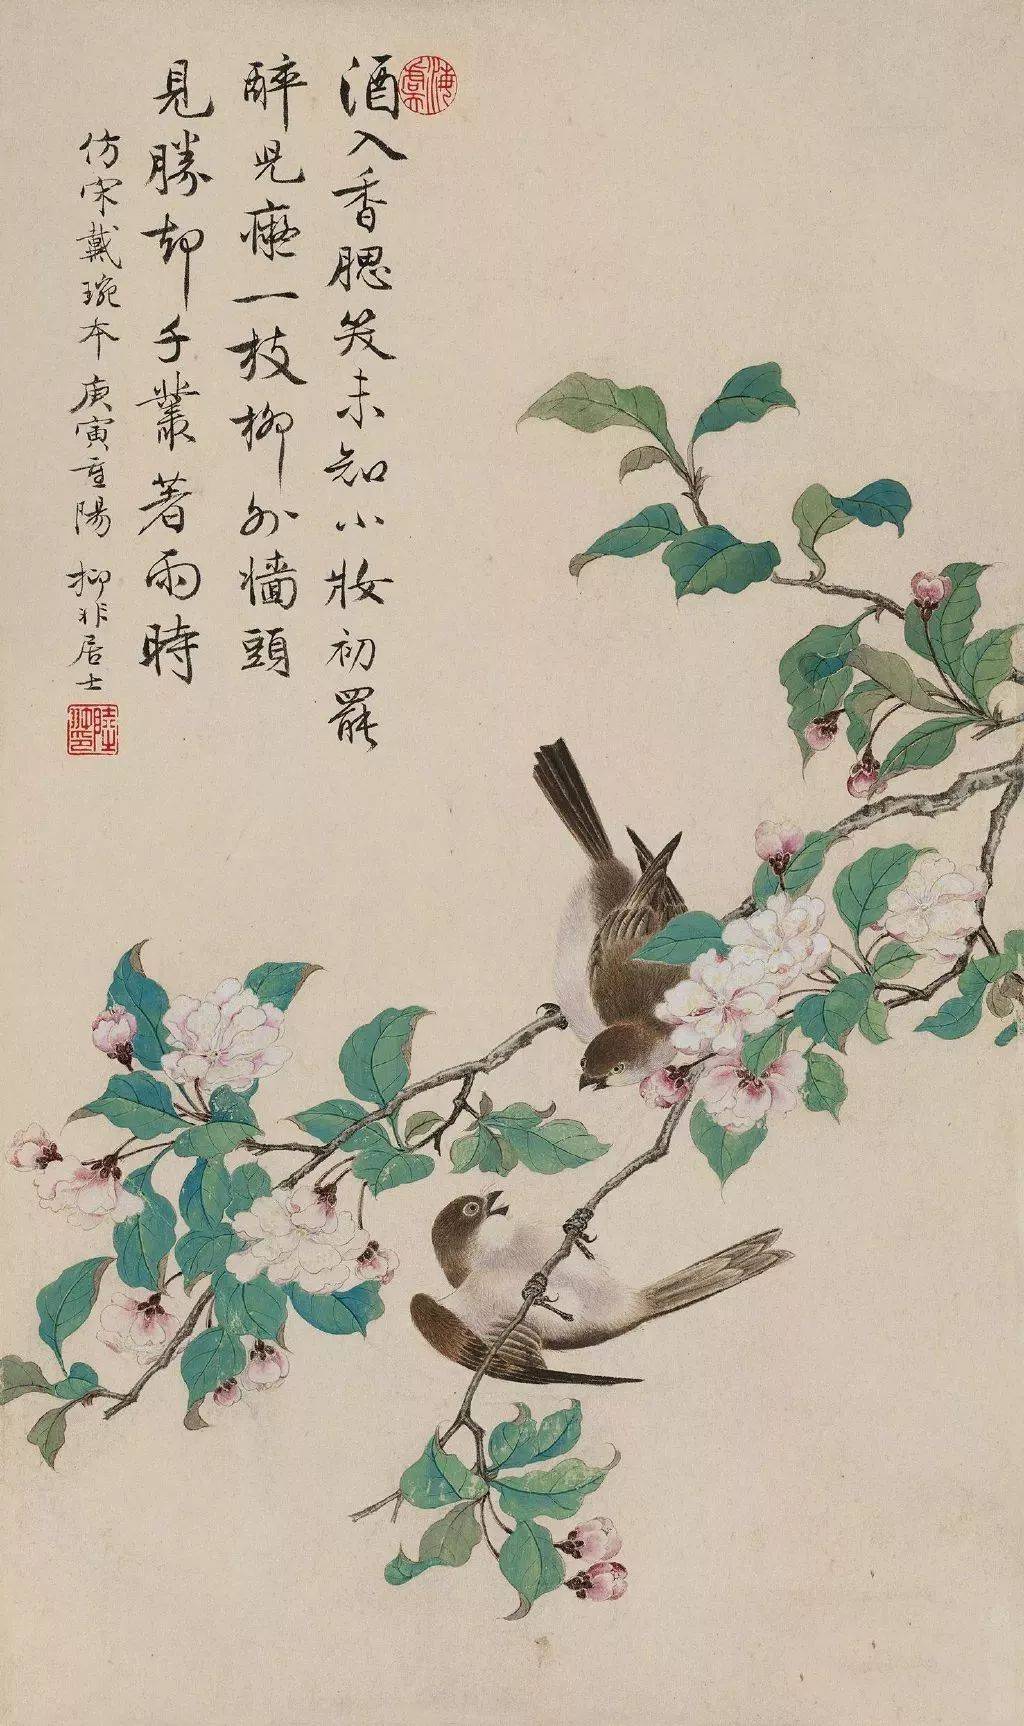 海虞
酒入香腮笑未知小妝初罷
醉兒癡一枝柳外牆頭
見勝却千叢著雨時
仿宋戴琬本 庚寅重陽 抑非居士